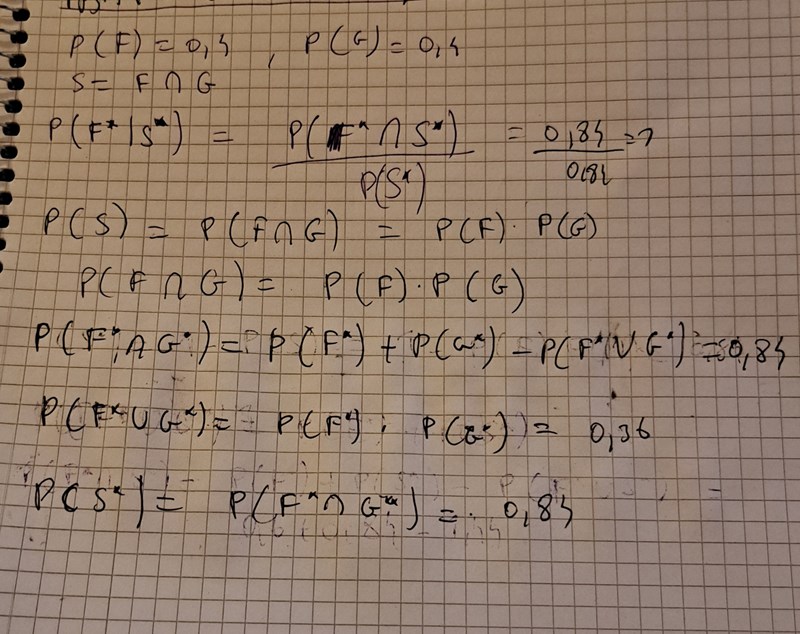 P(F) = 0,4 , P(G) = 0,4
S = F ∩ G
P(F* | S*) = P(F* ∩ S*) / P(S*) = 0,84 / 0,84 = 1
P(S) = P(F∩G) = P(F) · P(G)
P(F ∩ G) = P(F) · P(G)
P(F* ∩ G*) = P(F*) + P(G*) − P(F* ∪ G*) = 0,84
P(F* ∪ G*) = P(F*) · P(G*) = 0,36
P(S*) = P(F* ∩ G*) = 0,84